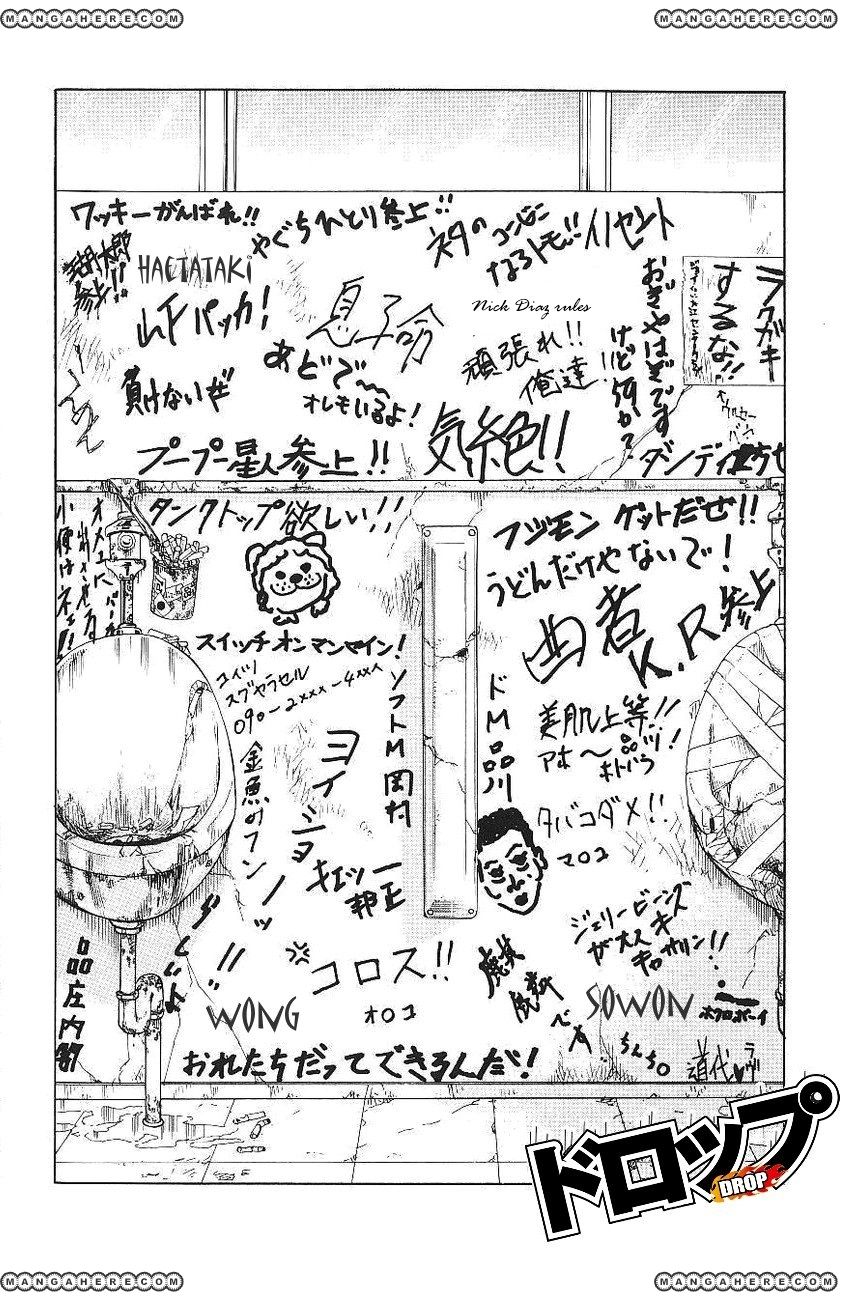 MANGAHERE.COM
MANGAHERE.COM
ワッキーがんばれ!!
やぐちひとり参上!!
ネタの
コンビニ
なろトモ!!
イノセント
参上!!
HACTATAKI
山下パッカ!
息子命
Nick Diaz rules
おぎやはぎです
けど何か?
ラクガキ
するな!!
頑張れ!!
俺達!!
あどで〜
オレもいるよ!
負けないぜ
プープー星人参上!!
気絶!!
ダンディ
タンクトップ欲しい!!
フジモン ゲットだぜ!!
うどんだけやないで!
曲者
K.R参上
スイッチオンマンマイン!
コイツ
スグヤラセル
090-2xxx-4xxx
ソフトM岡村
ドM品川
美肌上等!!
アホ〜
金魚のフン
ヨイショーッ!!
タバコダメ!!
マロコ
キエツー
邦正
ジェリービーンズ
が大スキ
キャサリン!!
コロス!!
オロコ
麒麟
です
WONG
SOWON
ホクロボーイ
品庄内
おれたちだってできるんだ!
ちんちロ
道代
ラヴ
ドロップ
DROP
MANGAHERE.COM
MANGAHERE.COM